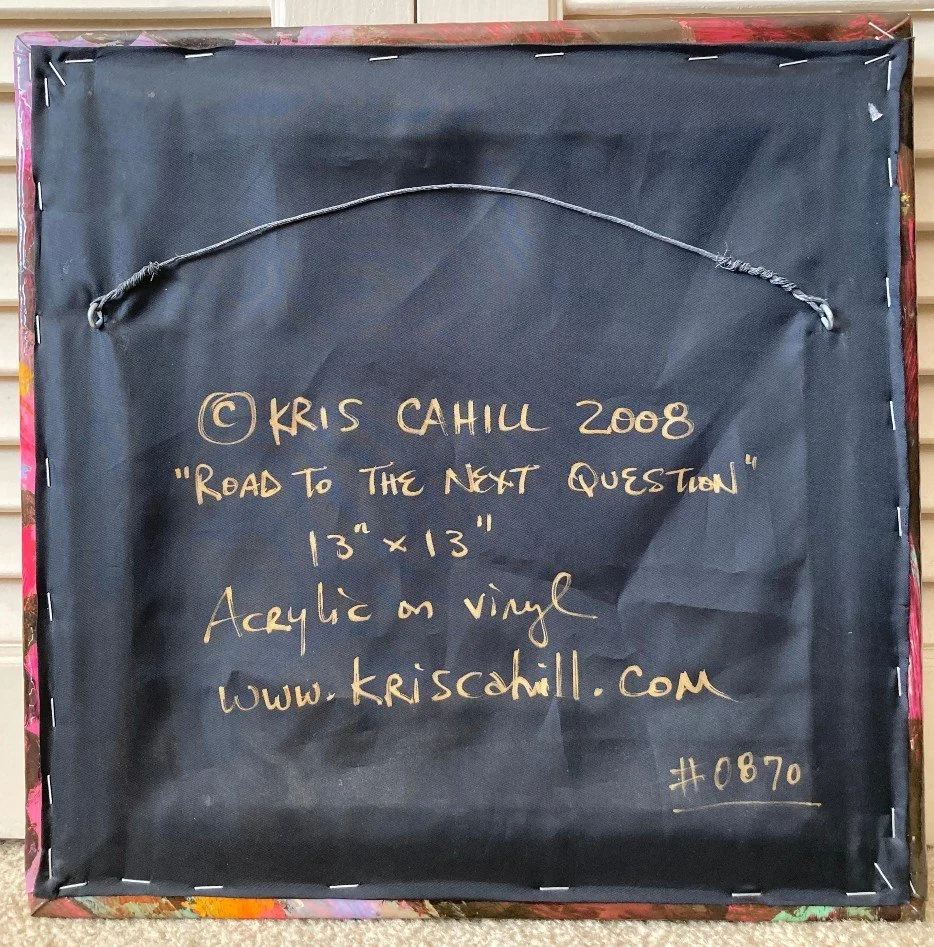 © KRIS CAHILL 2008
"ROAD TO THE NEXT QUESTION"
13" x 13"
Acrylic on vinyl
www.kriscahill.com
#0870